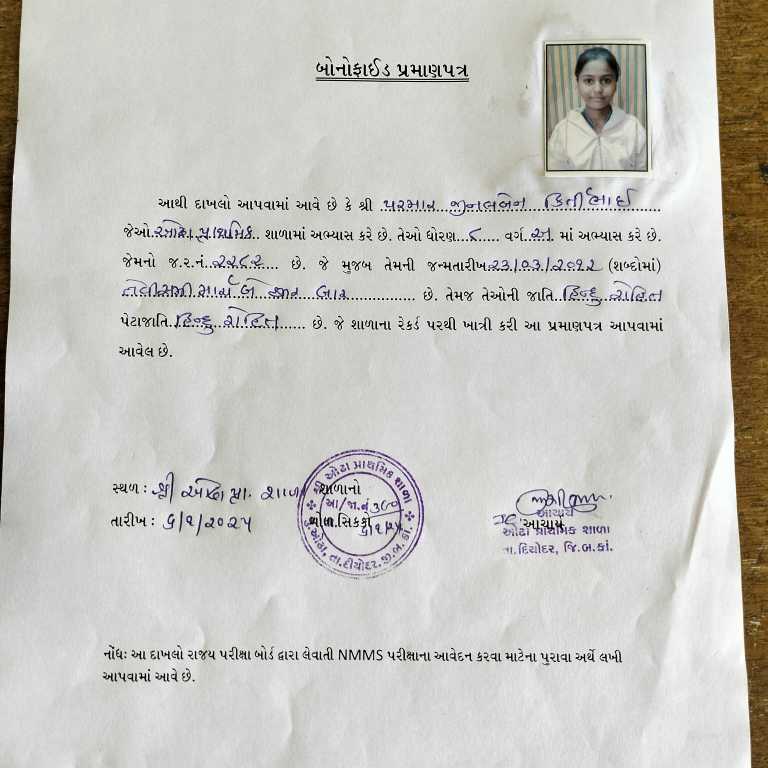 બોનોફાઈડ પ્રમાણપત્ર
આથી દાખલો આપવામાં આવે છે કે શ્રી .પરમાર જીનલબેન કિર્તીભાઈ
જેઓ.ઓઢા.પ્રાથમિક.. શાળામાં અભ્યાસ કરે છે. તેઓ ધોરણ...૮..... વર્ગ..અ.. માં અભ્યાસ કરે છે.
જેમનો જ.ર.નં...૨૨૮૨.... છે. જે મુજબ તેમની જન્મતારીખ.૨૩/૦૩/૨૦૧૨ (શબ્દોમાં)
તેવીસમી માર્ચ બે હજાર બાર.................. છે. તેમજ તેઓની જાતિ..હિન્દુ રોહિત
પેટાજાતિ.હિન્દુ રોહિત...... છે. જે શાળાના રેકર્ડ પરથી ખાત્રી કરી આ પ્રમાણપત્ર આપવામાં
આવેલ છે.
સ્થળ : શ્રી ઓઢા પ્રા. શાળા
શાળાનો
તારીખ : ૬/૧/૨૦૨૫
ગોળ સિક્કો
શ્રી ઓઢા પ્રાથમિક શાળા
આ/જા.નું ૩૯૦
૬/૧/૨૫
મુ.ઓઢા, તા.દીયોદર, જી.બ.કાં.
આચાર્ય
આચાર્ય
ઓઢા પ્રાથમિક શાળા
તા.દિયોદર, જિ.બ.કાં.
નોંધઃ આ દાખલો રાજય પરીક્ષા બોર્ડ દ્વારા લેવાતી NMMS પરીક્ષાના આવેદન કરવા માટેના પુરાવા અર્થે લખી
આપવામાં આવે છે.